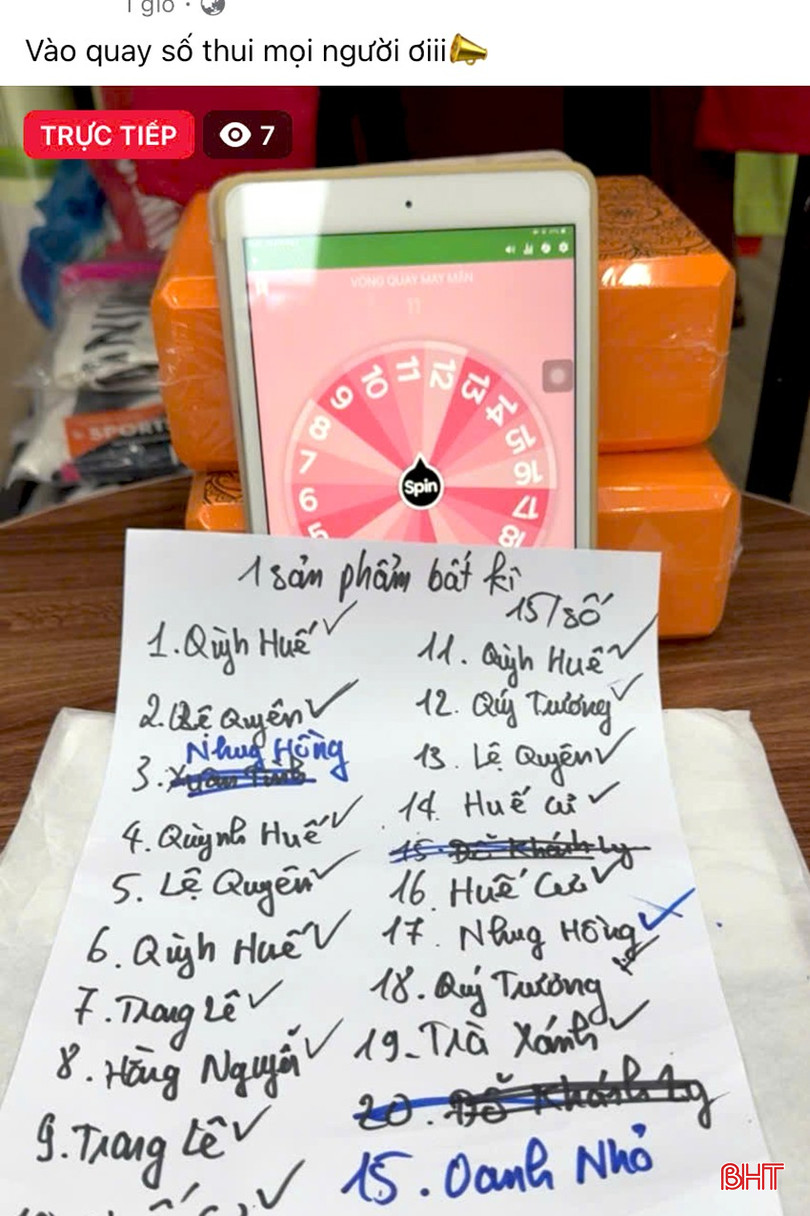 1 giờ
Vào quay số thui mọi người ơiii
TRỰC TIẾP
7
VÒNG QUAY MAY MẮN
11
5
6
7
8
9
10
11
12
13
14
15
16
17
18
Spin
SPORT
1 sản phẩm bất kì
15/số
1. Quỳh Huế
2. Lệ Quyên
Nhug Hồng
3.
4. Quỳnh Huế
5. Lệ Quyên
6. Quỳh Huế
7. Trang Lê
8. Hằng Nguyễn
9. Trang Lê
11. Quỳh Huế
12. Quý Tương
13. Lệ Quyên
14. Huế cơ
15. Đỗ Khánh Ly
16. Huế Cơ
17. Nhug Hồng
18. Quý Tương
19. Trà Xánh
20. Đỗ Khánh Ly
15. Oanh Nhỏ
BHT